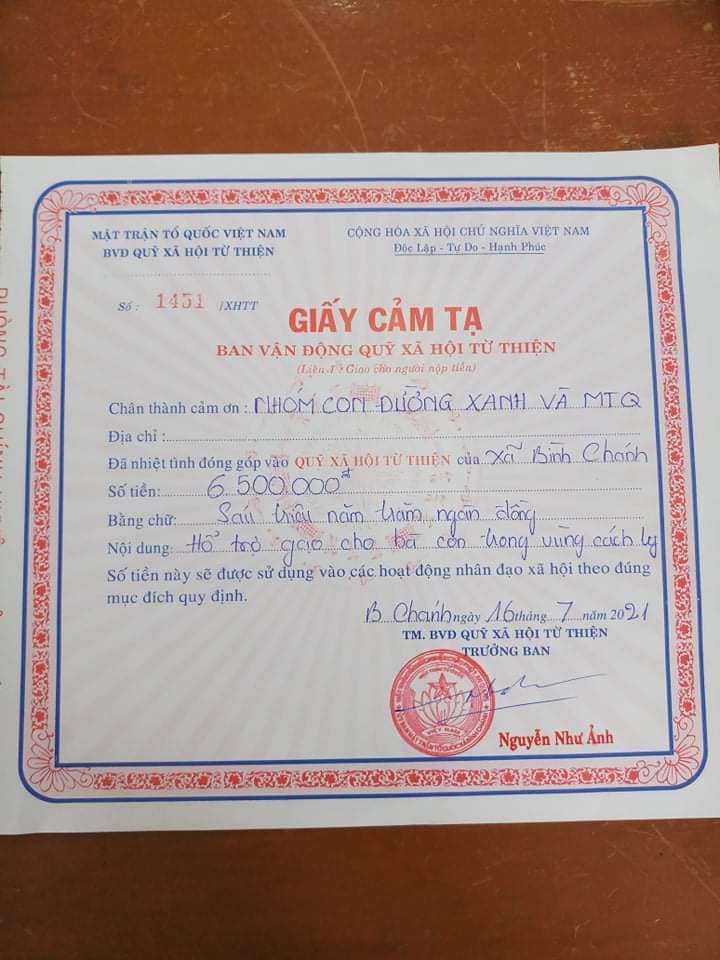 MẶT TRẬN TỔ QUỐC VIỆT NAM
BVĐ QUỸ XÃ HỘI TỪ THIỆN
CỘNG HÒA XÃ HỘI CHỦ NGHĨA VIỆT NAM
Độc Lập - Tự Do - Hạnh Phúc
Số : 1451 /XHTT
GIẤY CẢM TẠ
BAN VẬN ĐỘNG QUỸ XÃ HỘI TỪ THIỆN
(Liên 1: Giao cho người nộp tiền)
Chân thành cảm ơn : NHÓM CON ĐƯỜNG XANH VÀ MTQ
Địa chỉ :
Đã nhiệt tình đóng góp vào QUỸ XÃ HỘI TỪ THIỆN của xã Bình Chánh
Số tiền: 6.500.000đ
Bằng chữ: Sáu triệu năm trăm ngàn đồng
Nội dung: Hỗ trợ gạo cho bà con trong vùng cách ly
Số tiền này sẽ được sử dụng vào các hoạt động nhân đạo xã hội theo đúng
mục đích quy định.
B Chánh ngày 16 tháng 7 năm 2021
TM. BVĐ QUỸ XÃ HỘI TỪ THIỆN
TRƯỞNG BAN
VIỆT NAM
Nguyễn Như Ảnh